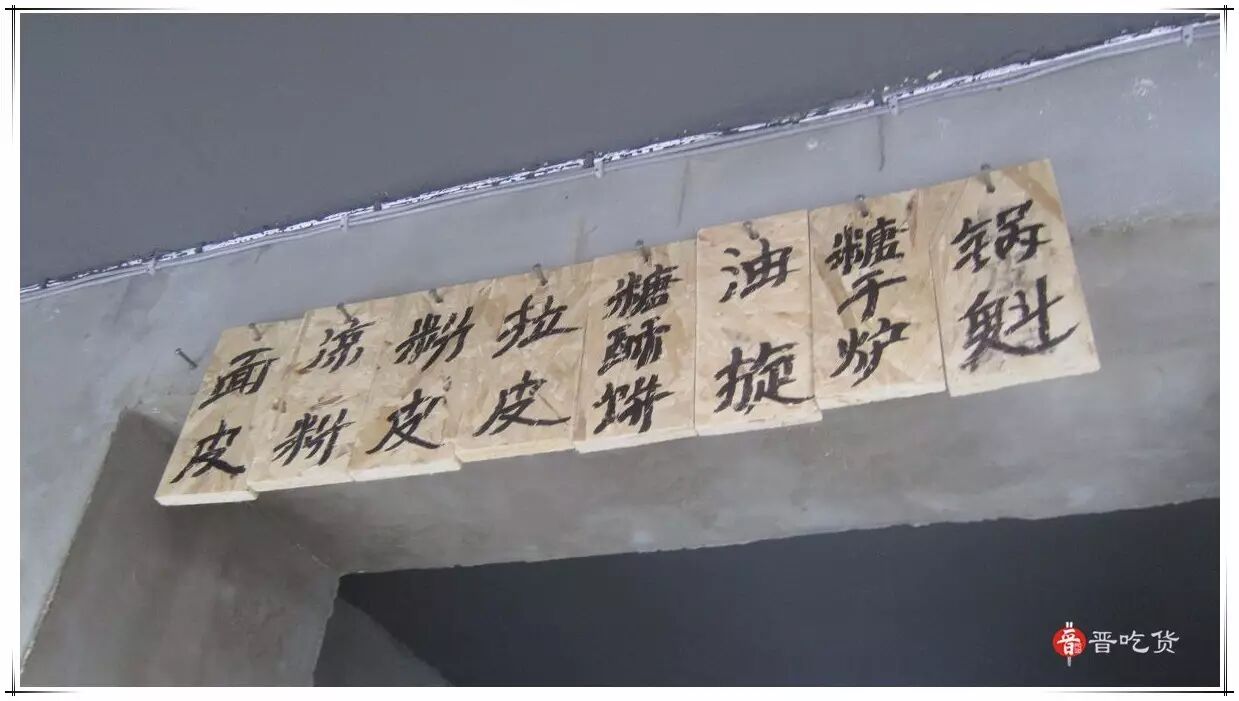 面皮
凉粉
粉皮
拉皮
糖酥饼
油旋
糖干炉
锅魁
晋吃货